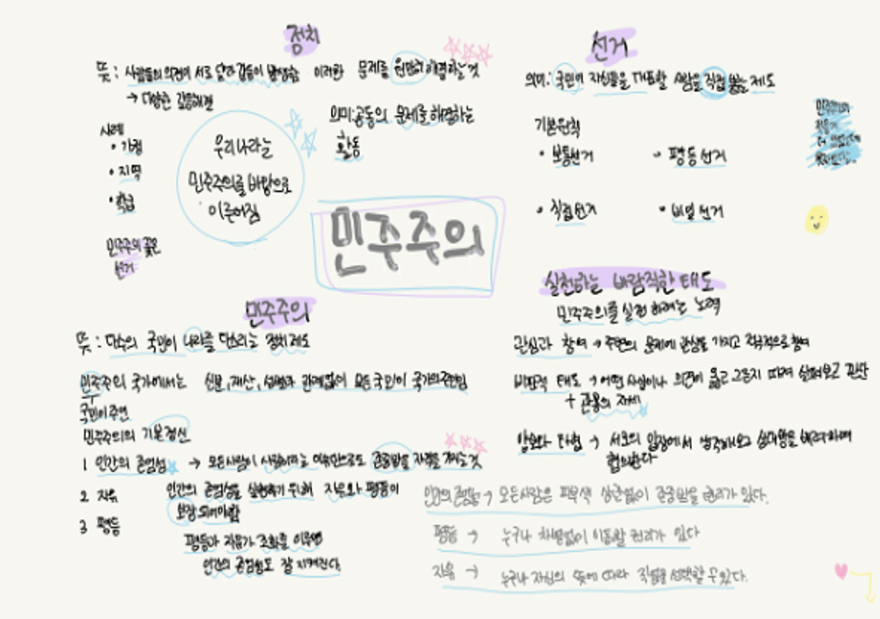 정치
뜻: 사람들의 의견이 서로 달라 갈등이 발생함 이러한 문제를 원만히 해결하는것
→ 다양한 갈등해결
의미:공동의 문제를 해결하는
활동
사례
• 가정
• 지역
• 학급
우리나라는
민주주의를 바탕으로
이루어짐
민주주의 꽃은
선거
민주주의
선거
의미: 국민이 자신들을 대표할 사람을 직접 뽑는 제도
기본원칙
• 보통선거
• 평등선거
• 직접선거
• 비밀선거
민주주의
뜻: 다수의 국민이 나라를 다스리는 정치제도
민주주의 국가에서는 신분, 재산, 성별과 관계없이 모든 국민이 국가의 주인임
국민이 주인
민주주의의 기본정신
1 인간의 존엄성 → 모든사람이 사람이라는 이유만으로도 존중받을 자격을 가지는것
2 자유
3 평등
인간의 존엄성을 실현하기 위해 자유와 평등이
보장 되어야함
평등과 자유가 조화를 이루면
인간의 존엄성도 잘 지켜진다.
실천하는 바람직한 태도
민주주의를 실천 하려는 노력
관심과 참여 → 주변의 문제에 관심을 가지고 적극적으로 참여
비판적 태도 → 어떤 사실이나 의견이 옳고 그른지 따져 살펴보고 판단
+ 관용의 자세
양보와 타협 → 서로의 입장에서 생각해보고 상대방을 배려하며
협의한다
인간의 존엄성 → 모든사람은 피부색 상관없이 존중받을 권리가 있다.
평등 → 누구나 차별없이 이동할 권리가 있다
자유 → 누구나 자신의 뜻에 따라 직업을 선택할 수 있다.